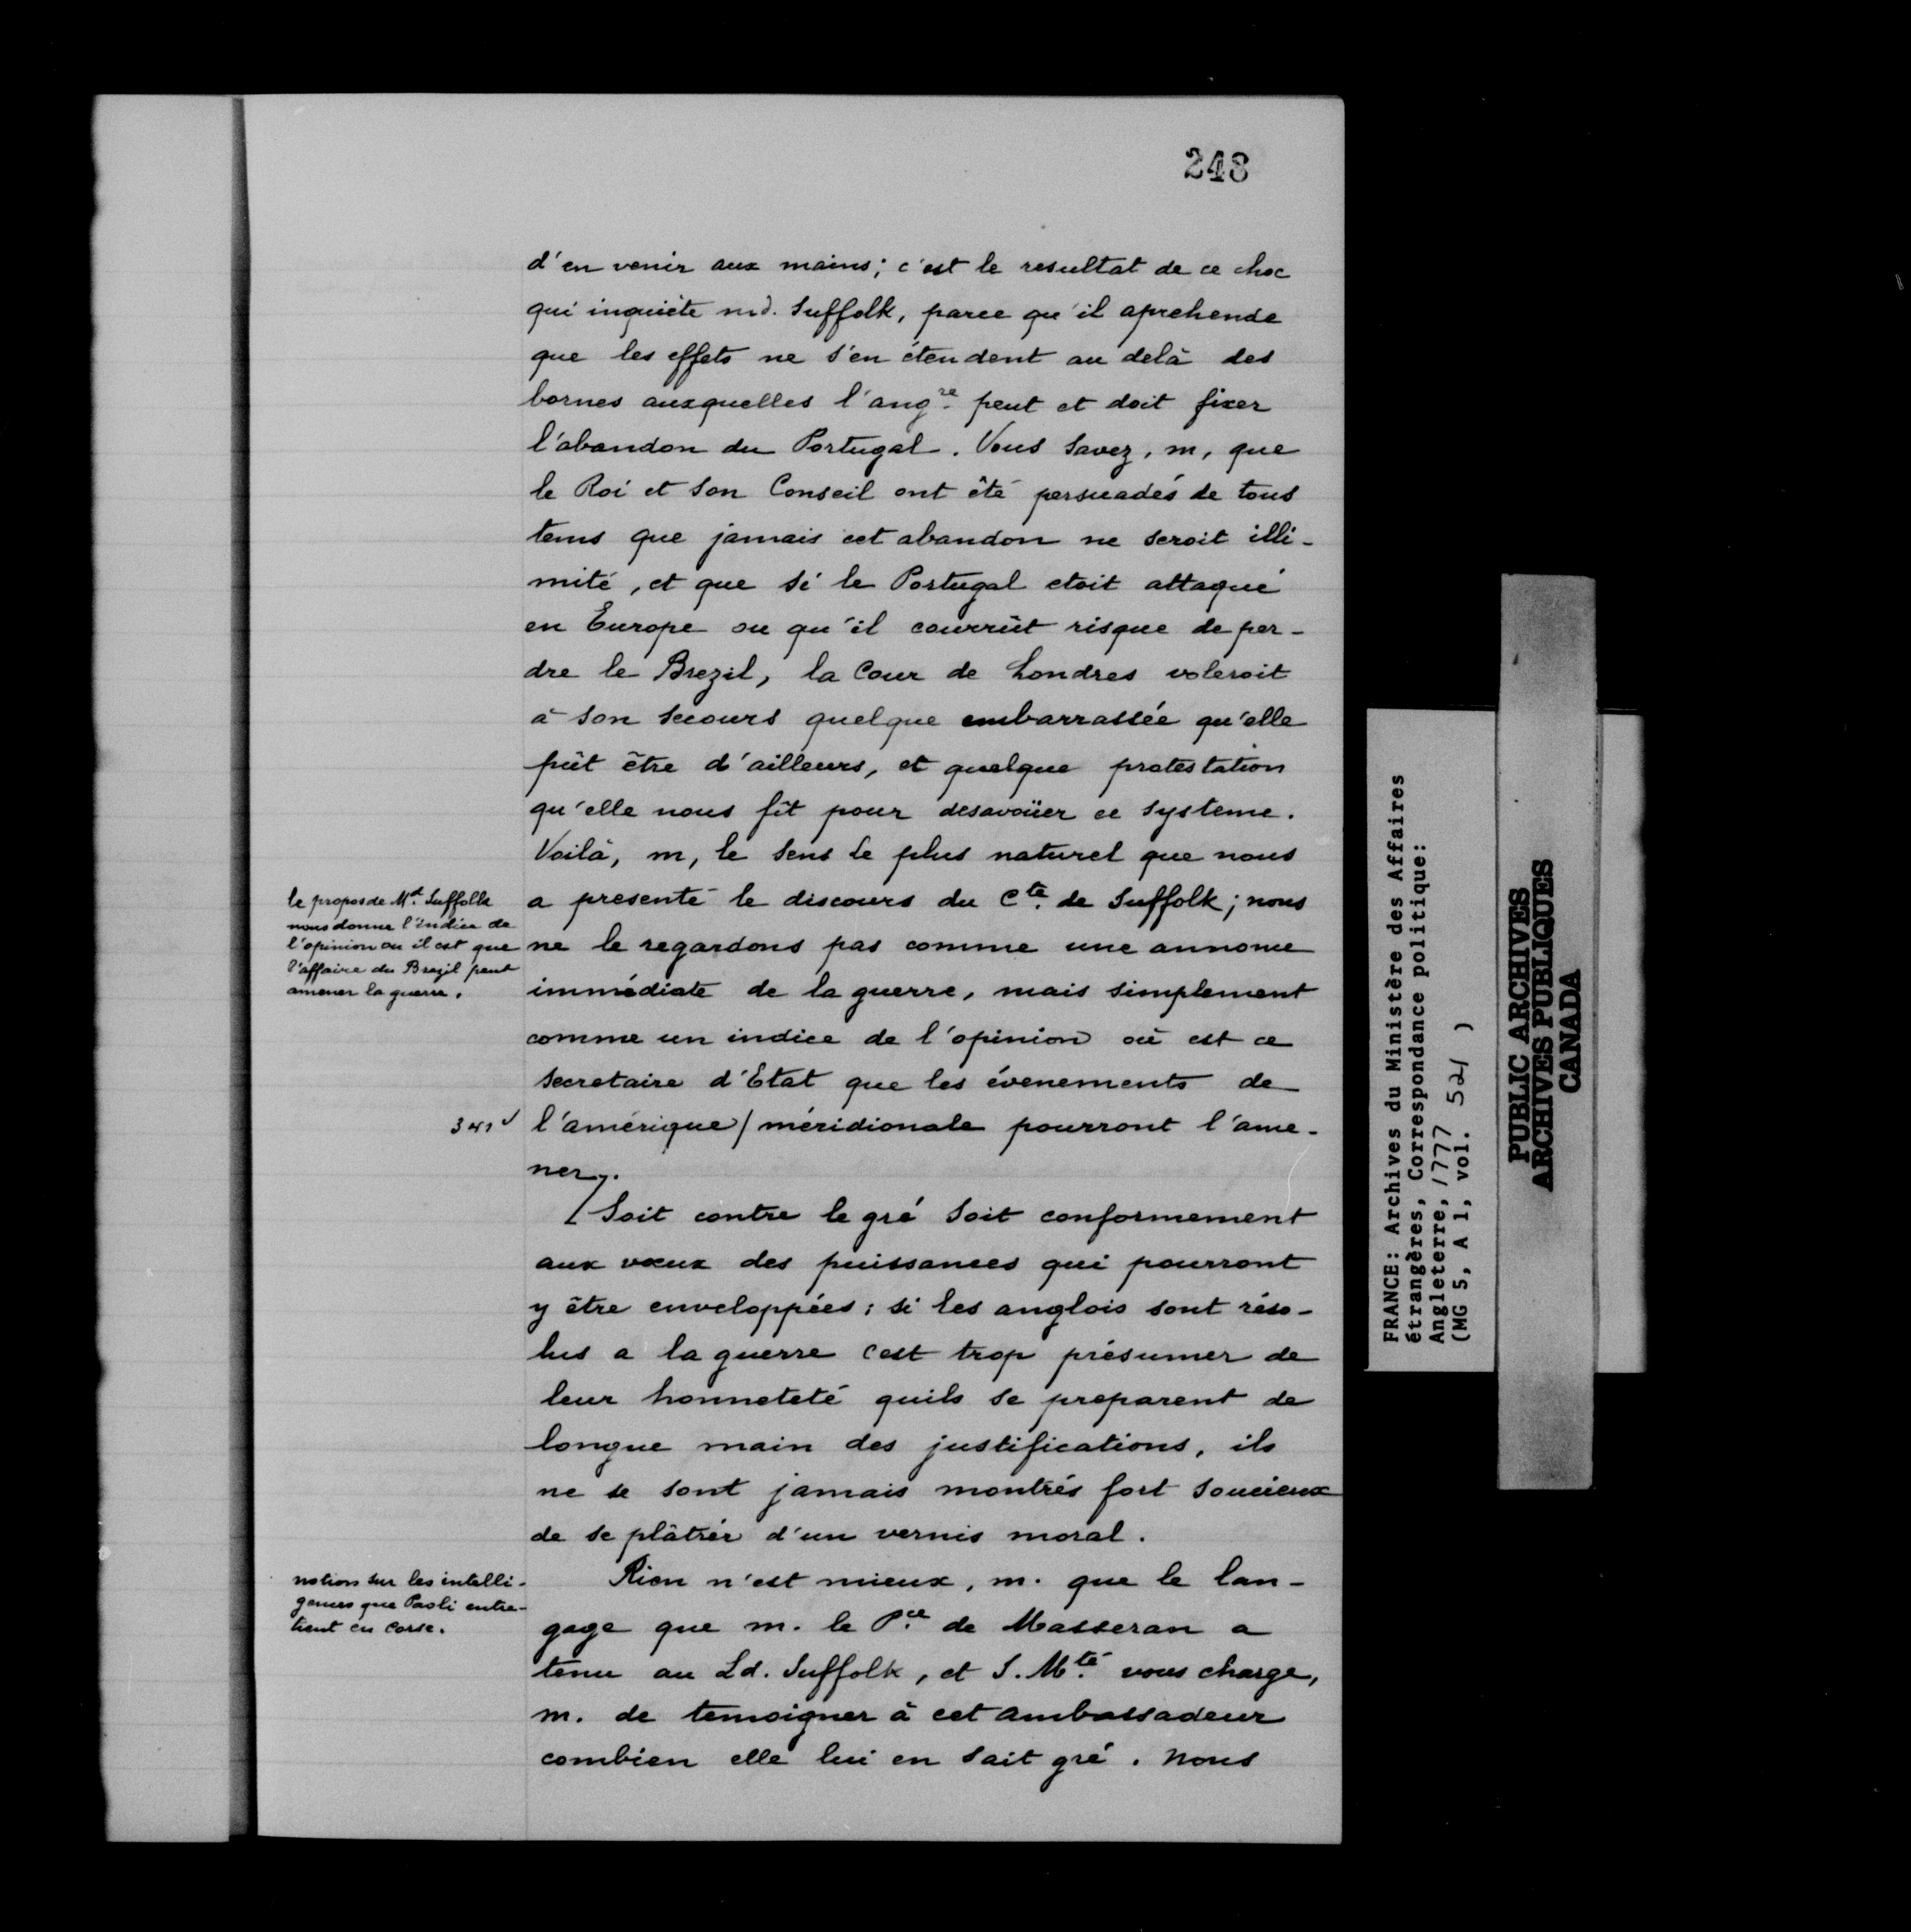 248
d'en venir aux mains; c'est le resultat de ce choc
qui inquiéte md. Suffolk, parce qu'il aprehende
que les effets ne s'en étendent au delà des
bornes auxquelles l'angre peut et doit fixer
l'abandon du Portugal. Vous savez, m, que
le Roi et son Conseil ont été persuadés de tous
tems que jamais cet abandon ne seroit illi-
mité, et que si le Portugal etoit attaqué
en Europe ou qu'il courrût risque de per-
dre le Brezil, la Cour de Londres voleroit
à son secours quelque embarrassée qu'elle
pût être d'ailleurs, et quelque protestation
qu'elle nous fît pour desavoüer ce systeme.
Voilà, m, le sens le plus naturel que nous
a presenté le discours du Cte. de Suffolk; nous
ne le regardons pas comme une annonce
immédiate de la guerre, mais simplement
comme un indice de l'opinion où est ce
secretaire d'Etat que les évenements de
l'amérique/méridionale pourront l'ame-
ner.
[Soit contre le gré soit conformement
aux vœux des puissances qui pourront
y être enveloppées; si les anglois sont réso-
lus a la guerre c'est trop présumer de
leur honneteté quils se preparent de
longue main des justifications, ils
ne se sont jamais montrés fort soucieux
de se plâtrer d'un vernis moral.
Rien n'est mieux, m. que le lan-
gage que m. le Pce. de Masseran a
tenu au Ld. Suffolk, et S. Mté. vous charge,
m. de temoigner à cet ambassadeur
combien elle lui en sait gré. Nous
le propos de Md. Suffolk
nous donne l'indice de
l'opinion ou il est que
l'affaire du Brezil peut
amener la guerre.
341 v
notions sur les intelli-
gences que Paoli entre-
tient en Corse.
FRANCE: Archives du Ministère des Affaires
étrangères, Correspondance politique:
Angleterre, 1777
(MG 5, A 1, vol. 521 )
PUBLIC ARCHIVES
ARCHIVES PUBLIQUES
CANADA